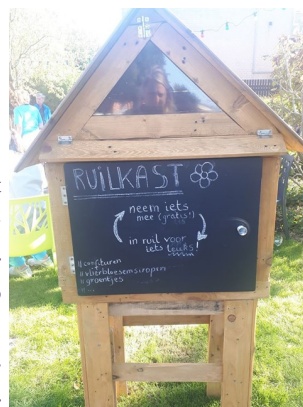 RUILKAST
neem iets
mee (gratis!)
in ruil voor
iets leuks!
#confituren
#vlierbloesemsiropen
#groentjes